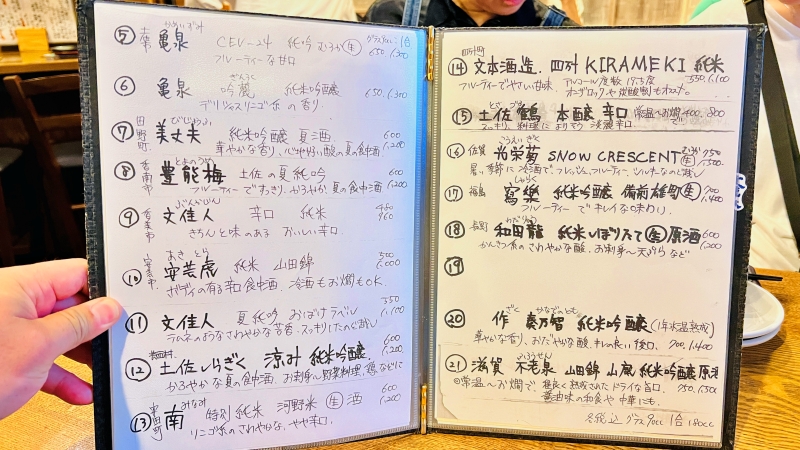 ⑤ 亀泉 CEL-24 純吟 むろか生 グラス 1合
かめいずみ
フルーティーな甘口 650 1,300
⑥ 亀泉 吟麓 純米吟醸 650 1,300
デリシャスリンゴ系の香り
⑦ 田野町 美丈夫 純米吟醸 夏酒 600 1,200
びじょうふ
華やかな香り、心地好い酸の夏の食中酒
⑧ 香南市 豊能梅 土佐の夏純吟 600 1,200
とよのうめ
フルーティーでわっき、かろやか 夏の食中酒
⑨ 文佳人 辛口 純米 480 960
ぶんかじん
きちんと味のある おいしい辛口
⑩ 安芸市 安芸虎 純米 山田錦 500 1,000
あきとら
ボディの有る辛口食中酒、冷酒もお燗もOK.
⑪ 文佳人 夏純吟 おばけラベル 550 1,100
ラムネのようなさわやかな芳香、スッキリたのど越し
⑫ 土佐しらぎく 涼み 純米吟醸 600 1,200
かろやかな夏の食中酒、お刺身、野菜料理、鶏などに
⑬ 南 特別純米 河野米 生酒 600 1,200
みなみ
リンゴ系のさわやかな、やや辛口.
⑭ 文本酒造. 四万十 KIRAMEKI 純米 550 1,100
フルーティーでやさしい甘味. アルコール度数 19.5度
オンザロックや炭酸割もオススメ.
⑮ 土佐鶴 本醸 辛口 常温〜お燗 400 800
とさづる
スッキリ、料理によりそう 淡麗辛口.
⑯ 佐賀 光栄菊 SNOW CRESCENT 生 750 1,500
こうえいぎく
暑い季節に冷酒で、フレッシュ、フルーティー、ジューシーなのど越し
⑰ 福島 寫樂 純米吟醸 備前雄町 生 700 1,400
しゃらく
フルーティーでキレイな味わり.
⑱ 長野 和田龍 純米しぼりたて生原酒 600 1,200
わだりゅう
かんきつ系のさわやかな酸、お刺身〜天ぷらなど
⑲
⑳ 作 奏乃智 純米吟醸 (1年氷温熟成)
ざく かなでのとも
華やかな香り、おだやかな酸、キレの良い後口、 700 1,400
㉑ 滋賀 不老泉 山田錦 山廃純米吟醸原酒
ふろうせん
常温〜お燗で 程良く熟成されたドライな旨口 750 1,500
醤油味の和食や中華にも.
税込 グラス90cc 1合180cc